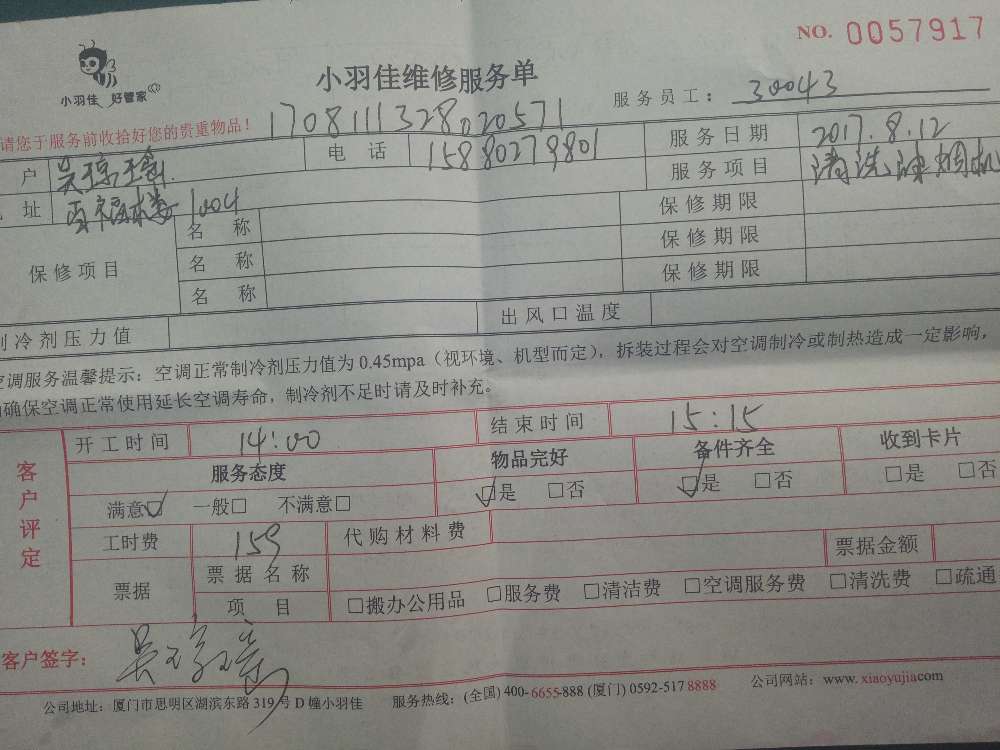 NO. 0057917
小羽佳 好管家
小羽佳维修服务单
服务员工: 30043
请您于服务前收拾好您的贵重物品!
1708111328020571
户 电话 15880279801 服务日期 2017.8.12
址 1004 服务项目 清洗 烟机
保修项目 名称 保修期限
名称 保修期限
名称 保修期限
制冷剂压力值 出风口温度
空调服务温馨提示:空调正常制冷剂压力值为0.45mpa(视环境、机型而定),拆装过程会对空调制冷或制热造成一定影响,
确保空调正常使用延长空调寿命,制冷剂不足时请及时补充。
客户评定
开工时间 14:00 结束时间 15:15
服务态度 物品完好 备件齐全 收到卡片
满意☑ 一般□ 不满意□ ☑是 □否 ☑是 □否 □是 □否
工时费 159 代购材料费 票据金额
票据 票据名称
项目 □搬办公用品 □服务费 □清洁费 □空调服务费 □清洗费 □疏通
客户签字:
公司地址:厦门市思明区湖滨东路319号D幢小羽佳 服务热线:(全国)400-6655-888 (厦门)0592-5178888 公司网站:www.xiaoyujiacom